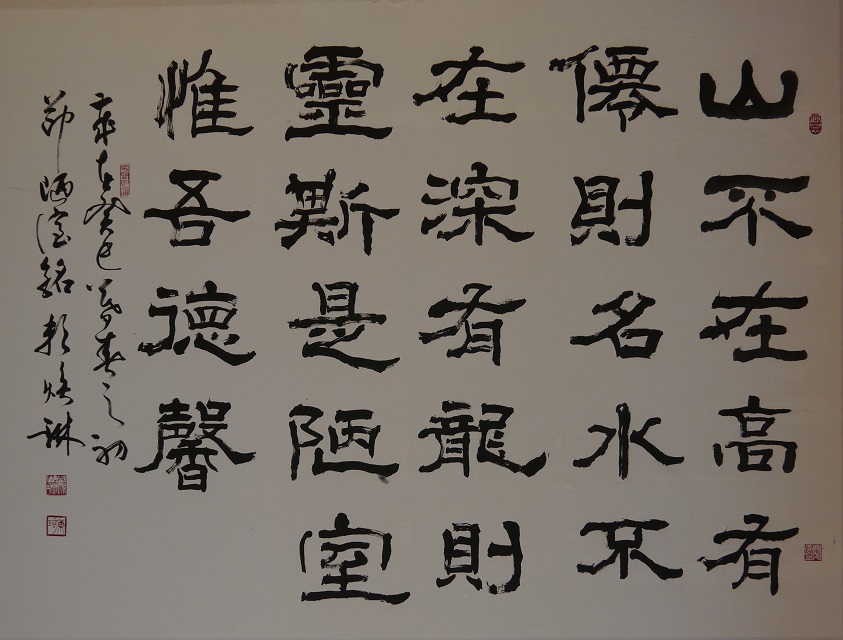 山不在高有
僊則名水不
在深有龍則
靈斯是陋室
惟吾德馨
歲在癸巳暮春之初
節陋室銘